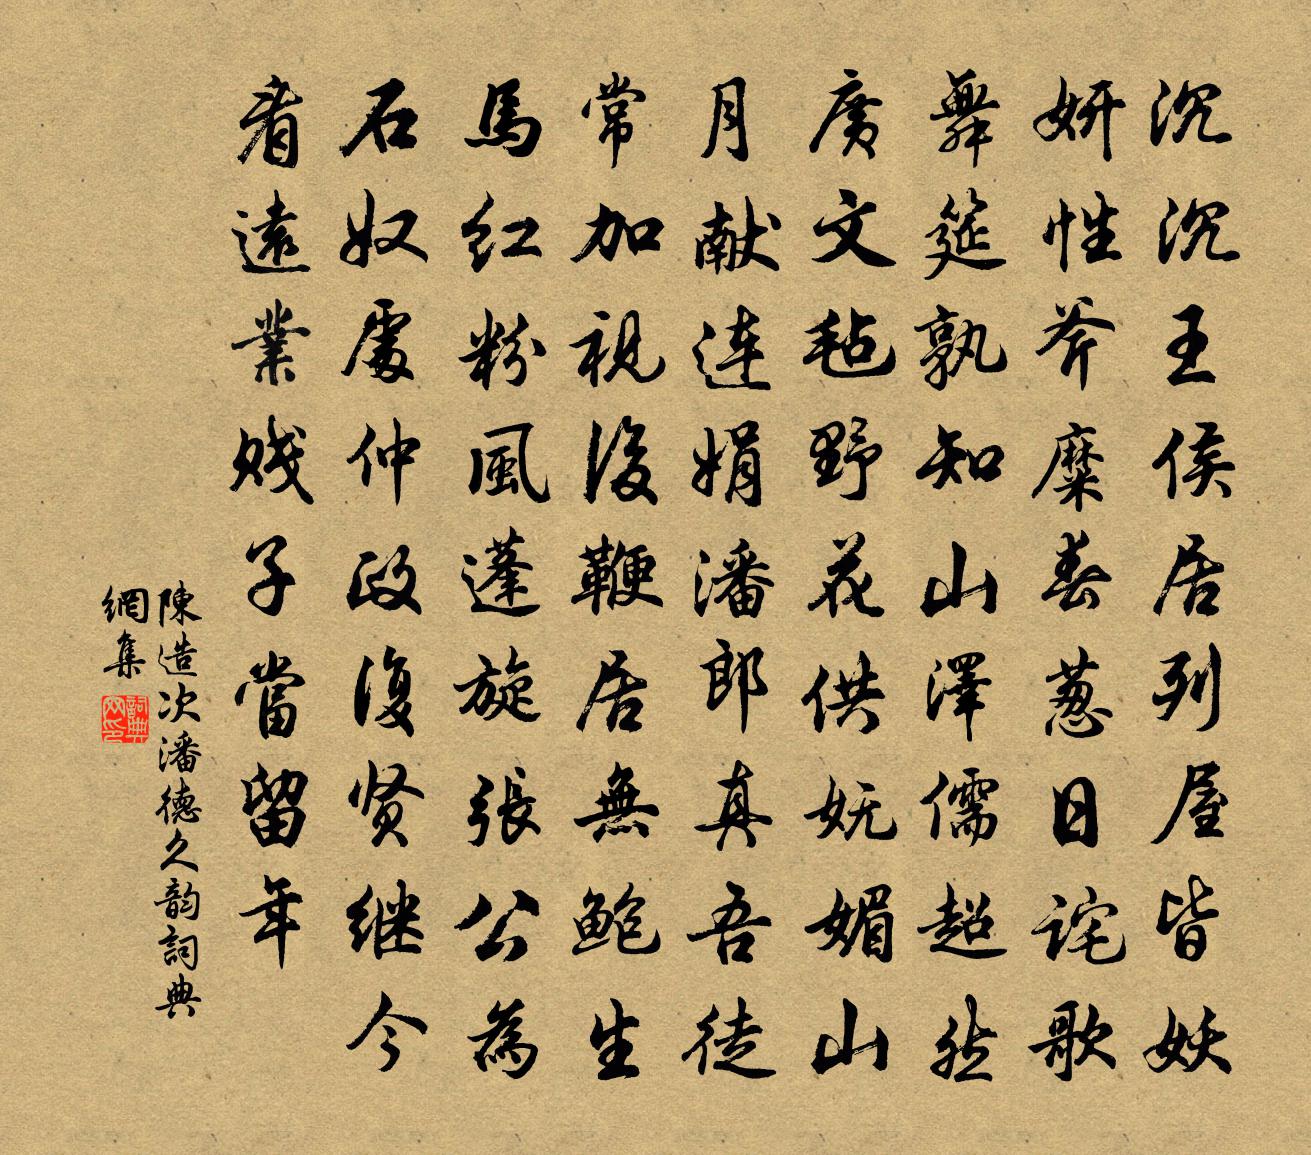 沉沉王侯居列屋皆妖
妍性斧糜春葱日詫歌
舞筵孰知山澤儒超然
廣文毡野花供妩媚山
月献连娟潘郎真吾徒
常加視後鞭居無鲍生
馬红粉風蓬旋張公為
石奴處仲政復贤继今
看遠業賤子當留年
陳造次潘德久韵詞典
網集
詞典網印